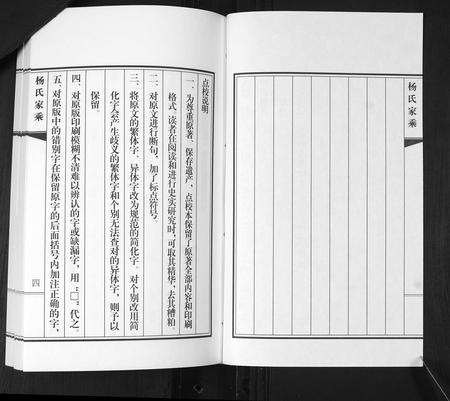 杨氏家乘
点校说明
一、为尊重原著、保存遗产，点校本保留了原著全部内容和印刷
格式。读者在阅读和进行史实研究时，可取其精华，去其糟粕。
二、对原文进行断句，加了标点符号。
三、将原文的繁体字、异体字改为规范的简化字。对个别改用简
化字会产生歧义的繁体字和个别无法查对的异体字，则予以
保留。
四、对原版印刷模糊不清难以辨认的字或缺漏字，用“□”代之。
五、对原版中的错别字在保留原字的后面括号内加注正确的字，
杨氏家乘
四